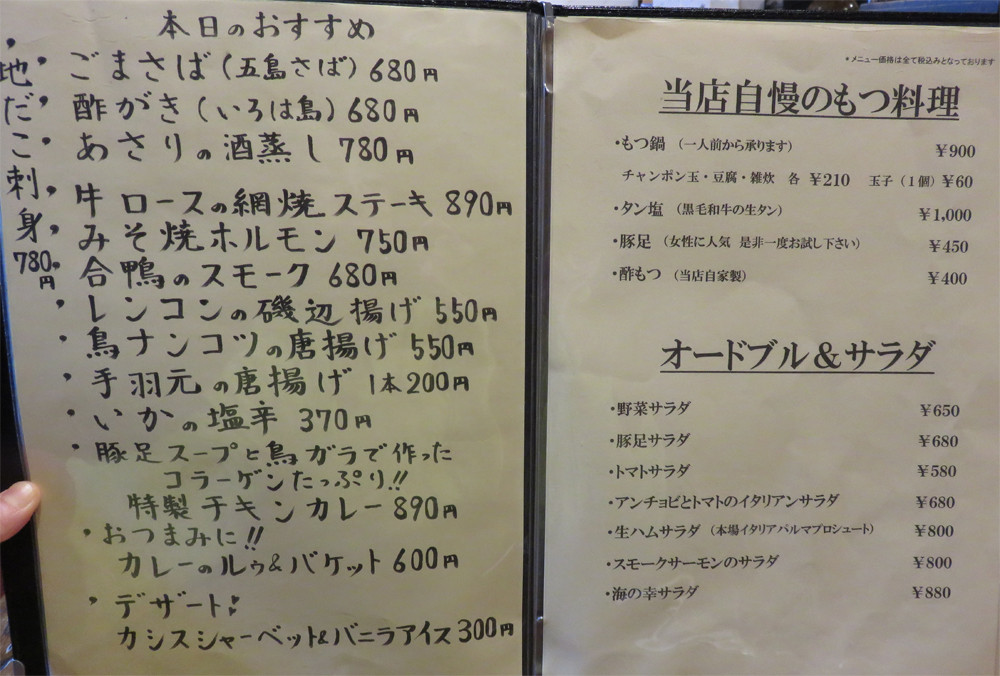 本日のおすすめ
・ごまさば(五島さば)680円
・酢がき(いろは島)680円
・あさりの酒蒸し 780円
・牛ロースの網焼ステーキ 890円
・みそ焼ホルモン 750円
・合鴨のスモーク 680円
・レンコンの磯辺揚げ 550円
・鳥ナンコツの唐揚げ 550円
・手羽元の唐揚げ 1本200円
・いかの塩辛 370円
・豚足スープと鳥ガラで作った
コラーゲンたっぷり!!
特製チキンカレー 890円
・おつまみに!!
カレーのルゥ&バケット 600円
・デザート
カシスシャーベット&バニラアイス 300円
・地だこ刺身
780円
*メニュー価格は全て税込みとなっております
当店自慢のもつ料理
・もつ鍋 (一人前から承ります) ¥900
チャンポン玉・豆腐・雑炊 各 ¥210 玉子(1個)¥60
・タン塩 (黒毛和牛の生タン) ¥1,000
・豚足 (女性に人気 是非一度お試し下さい) ¥450
・酢もつ (当店自家製) ¥400
オードブル&サラダ
・野菜サラダ ¥650
・豚足サラダ ¥680
・トマトサラダ ¥580
・アンチョビとトマトのイタリアンサラダ ¥680
・生ハムサラダ (本場イタリアパルマプロシュート) ¥800
・スモークサーモンのサラダ ¥800
・海の幸サラダ ¥880